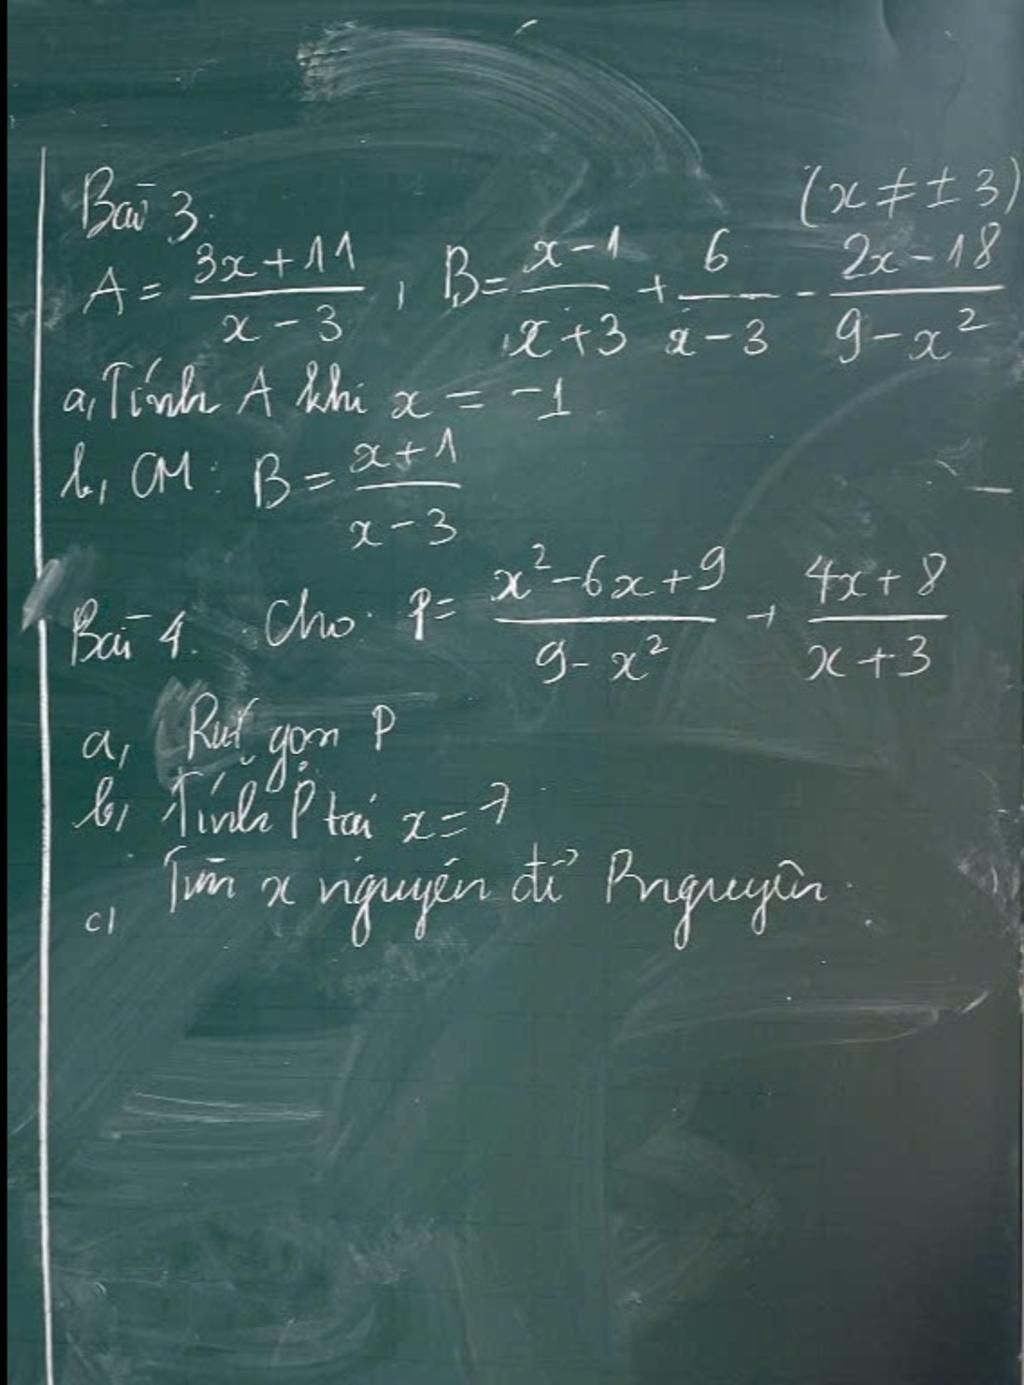 Bài 3. (x ≠ ± 3)
A = \frac{3x+11}{x-3}, B = \frac{x-1}{x+3} + \frac{6}{x-3} - \frac{2x-18}{9-x^2}
a, Tính A khi x = -1
b, CM: B = \frac{x+1}{x-3}
Bài 4. Cho: P = \frac{x^2-6x+9}{9-x^2} + \frac{4x+8}{x+3}
a, Rút gọn P
b, Tính P tại x = 7
c, Tìm x nguyên để P nguyên.